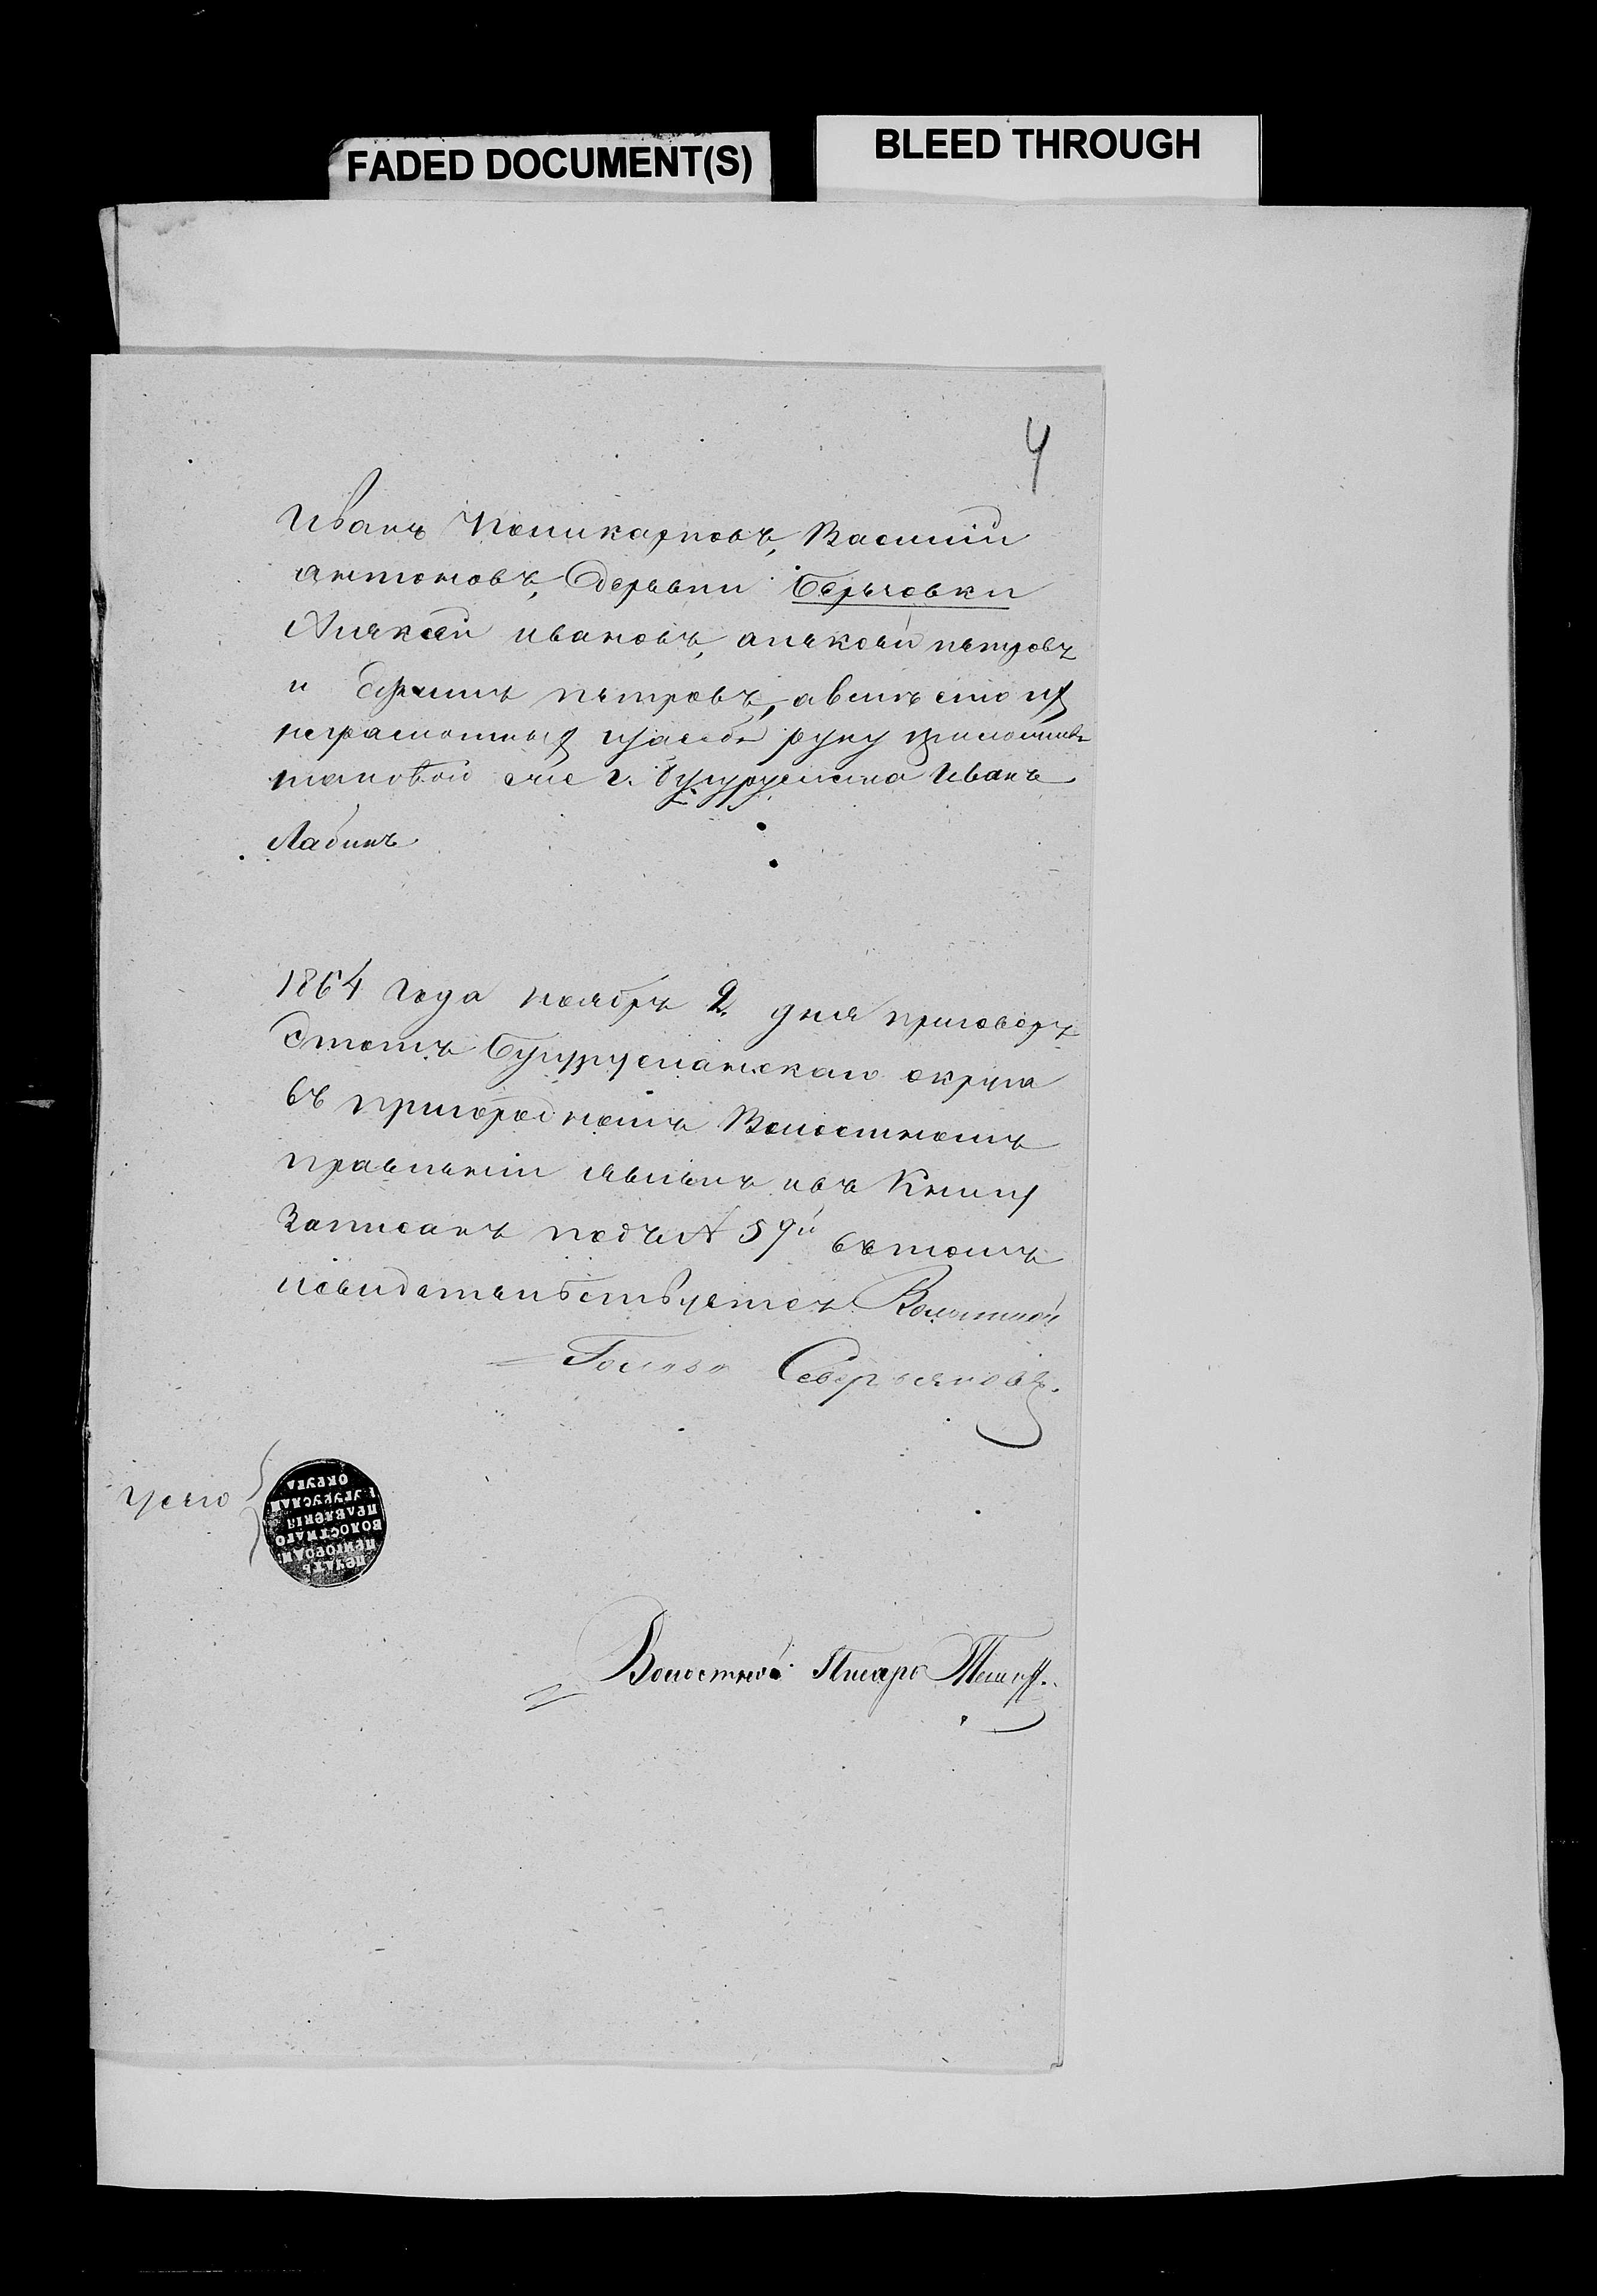 FADED DOCUMENT(S)
BLEED THROUGH
4
Иванъ Поликарповъ, Василій
антоновъ, Деревни Борисовки
Алексѣй ивановъ, алексѣй петровъ
и петровъ, авмѣсто их
неграмотных руку приложилъ
таковой же г. Бугуруслана Иванъ
Лабинъ
1864 года ноября 2. дня приговоръ
Этотъ Бугурусланскаго округа
въ пригородномъ Волостномъ
правленіи явленъ ивъ Книгу
Записанъ подъ № 59й вътомъ
свидетельствуетъ Волостной
Голова Северьяновъ.
ПЕЧАТЬ
ПРИГОРОДН.
ВОЛОСТНАГО
ПРАВЛЕНІЯ
БУГУРУСЛАН
ОКРУГА
Волостной Писарь